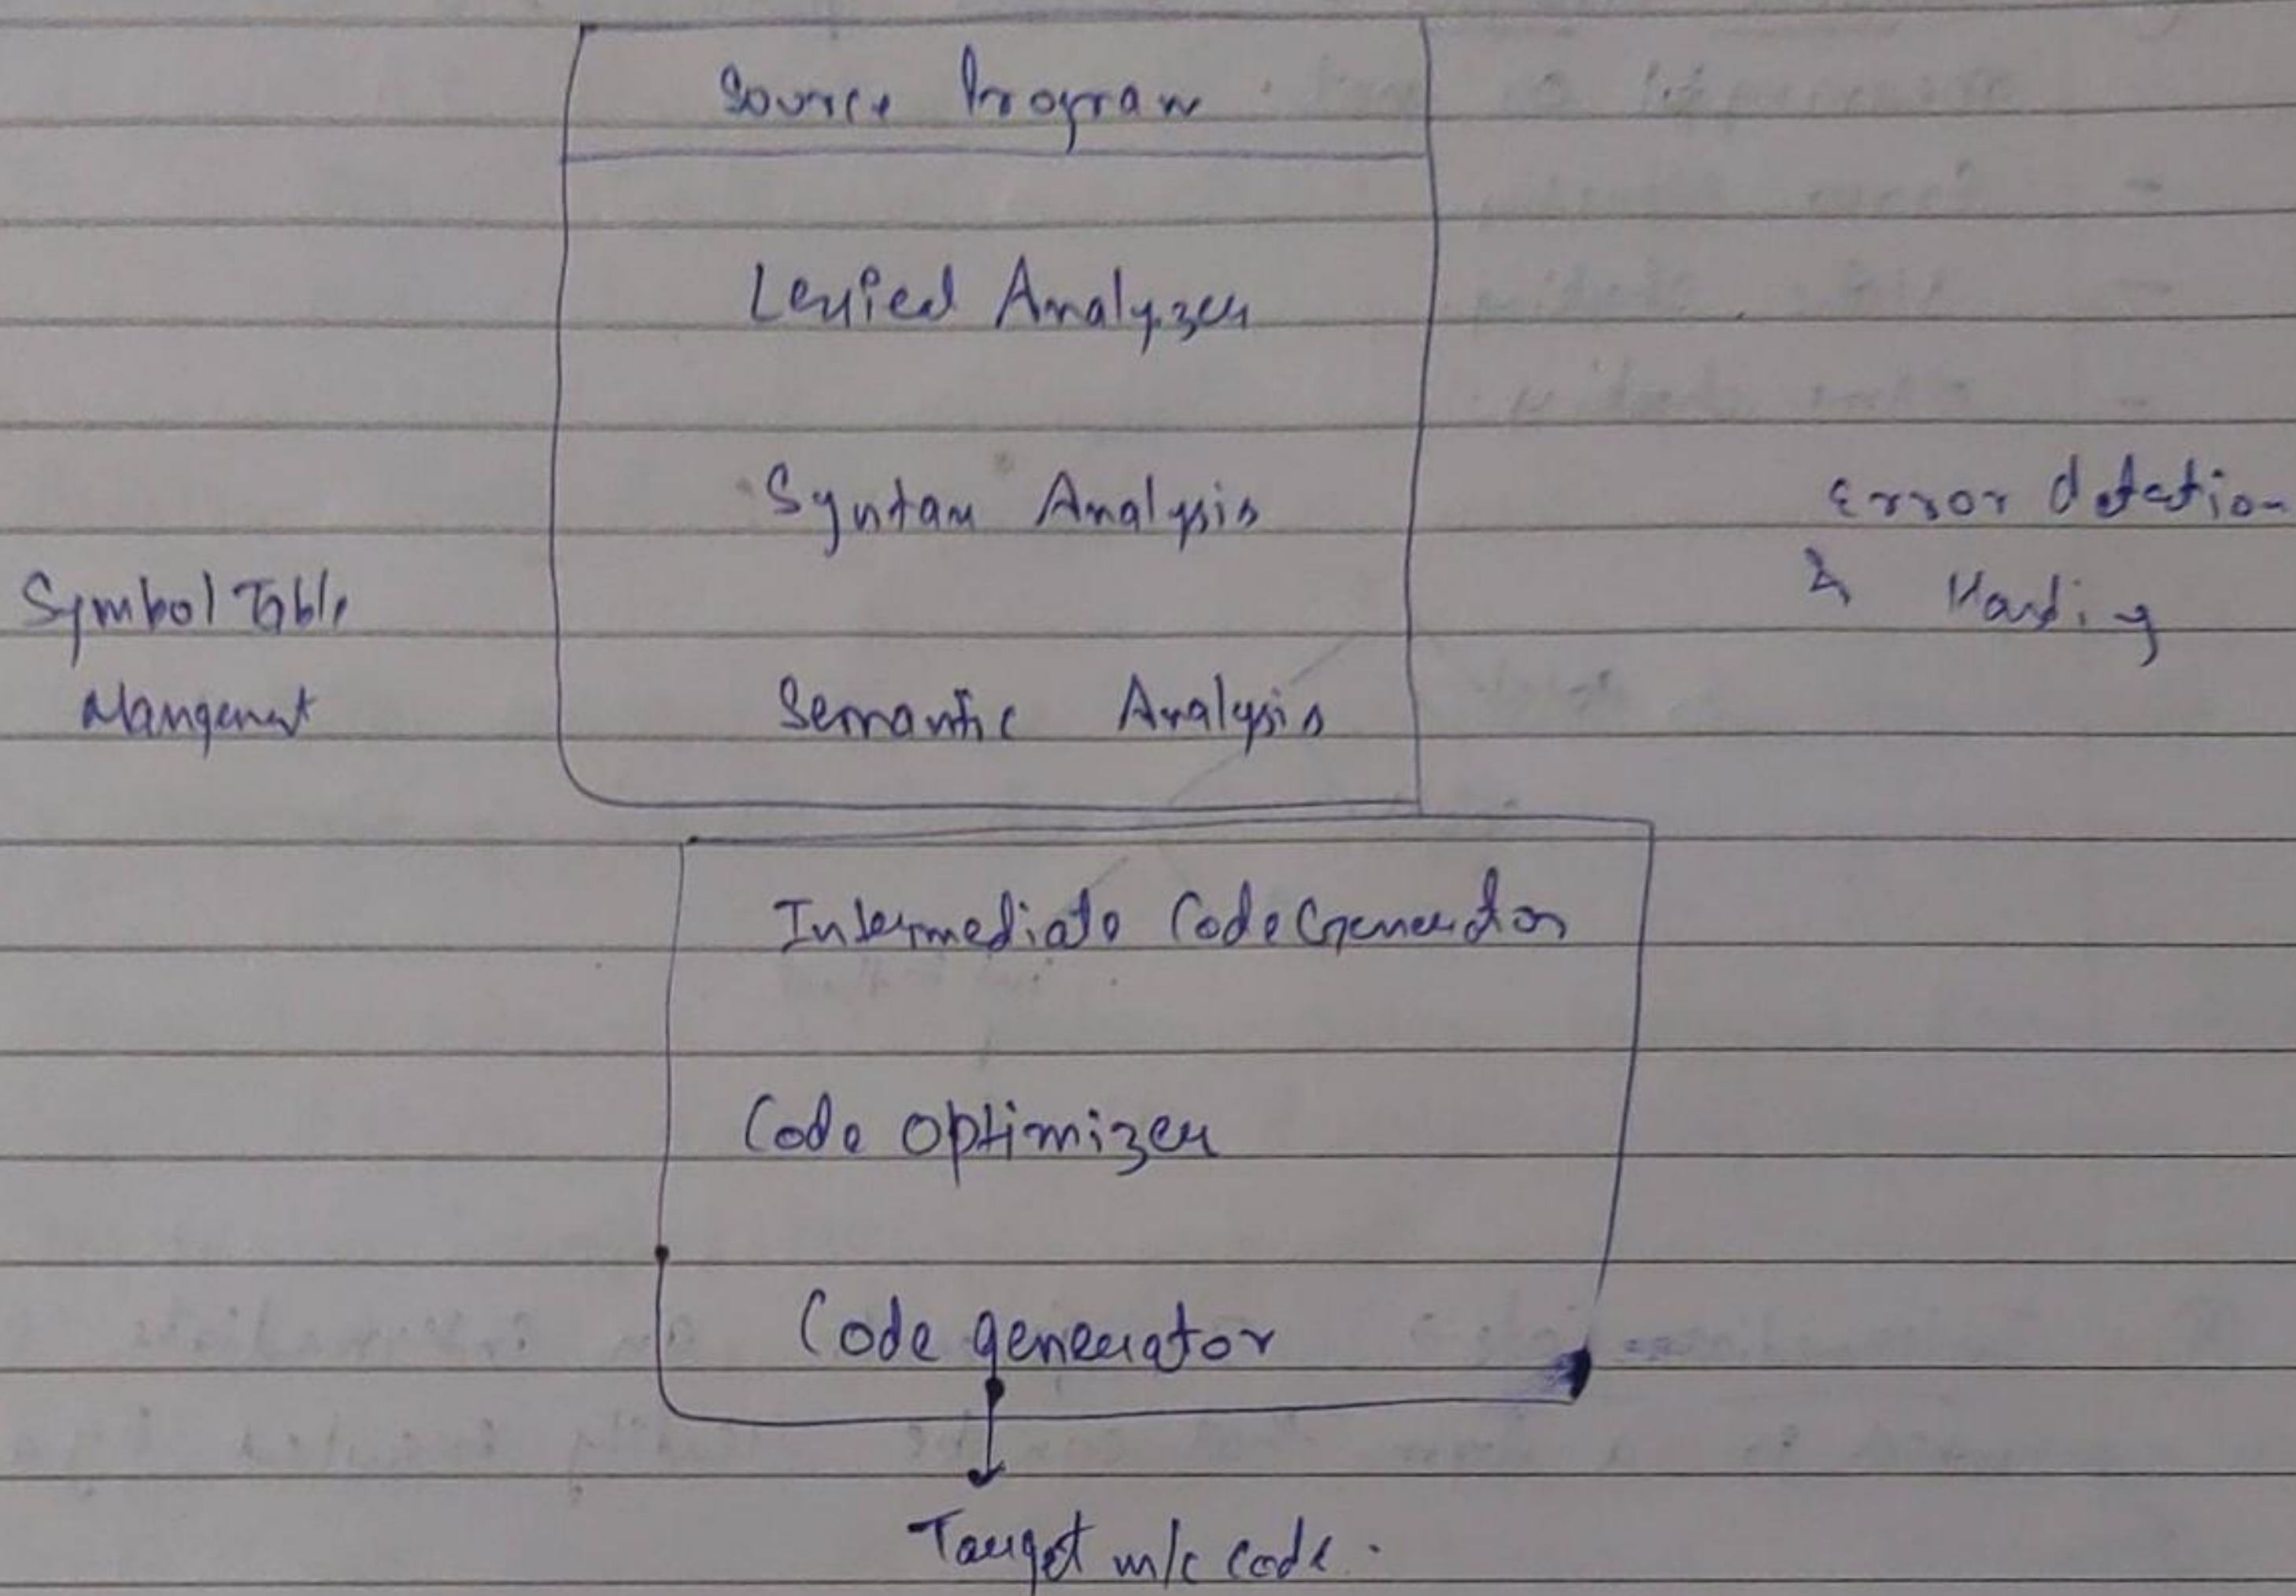 Source Program
Lexical Analyzer
Syntax Analysis
Error detection
Symbol Table
&
Mangement
Semantic Analysis
Intermediate Code Generator
Code Optimizer
Code generator
Target m/c code.